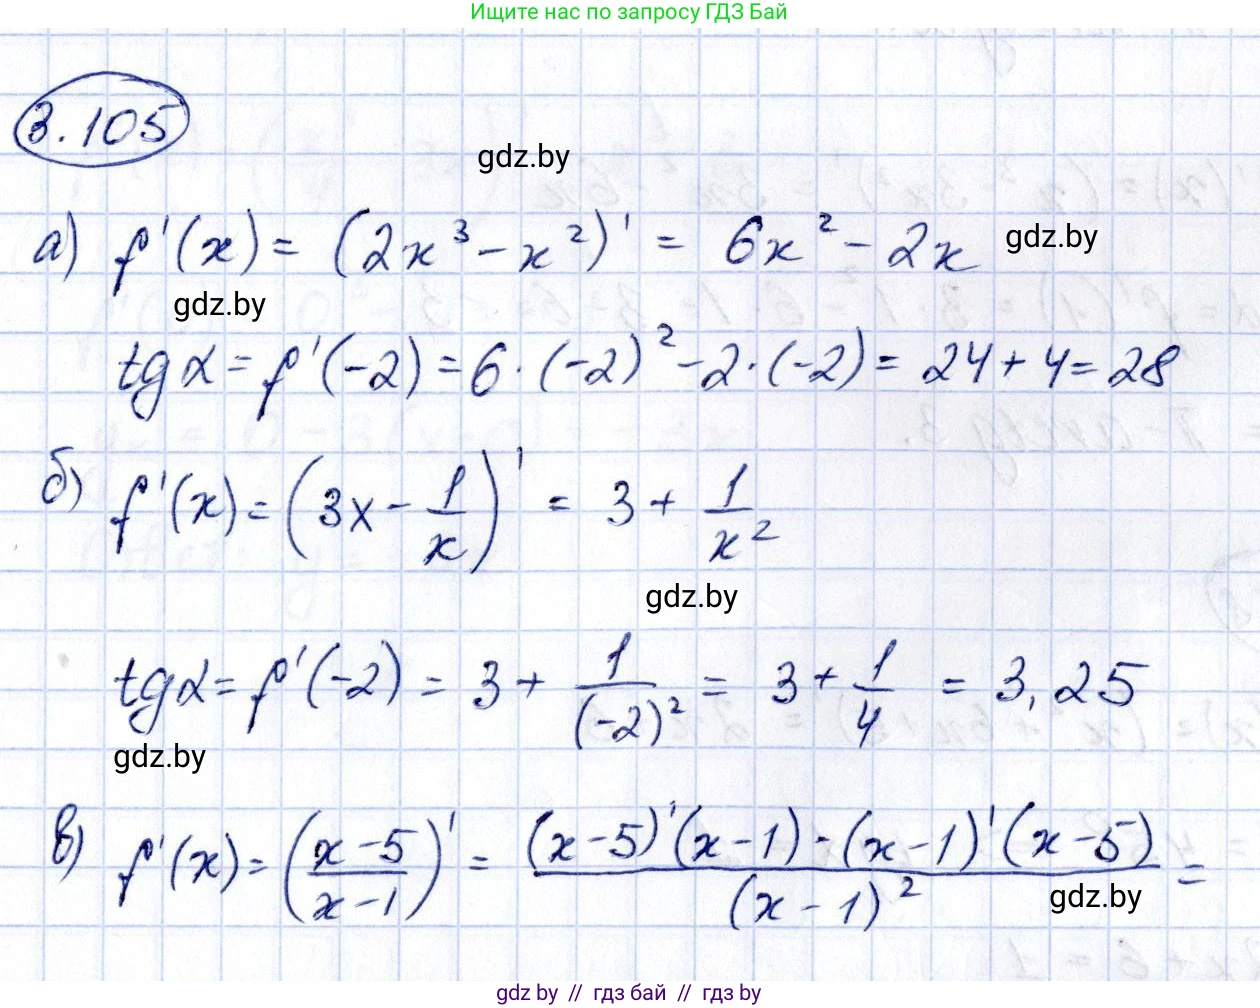 Ищите нас по запросу ГДЗ Бай
3.105
gdz.by
а) f'(x) = (2x³ - x²)' = 6x² - 2x
gdz.by
gdz.by
tg α = f'(-2) = 6 · (-2)² - 2 · (-2) = 24 + 4 = 28
б) f'(x) = (3x - 1/x)' = 3 + 1/x²
gdz.by
tg α = f'(-2) = 3 + 1/(-2)² = 3 + 1/4 = 3,25
gdz.by
в) f'(x) = ((x-5)/(x-1))' = ((x-5)'(x-1) - (x-1)'(x-5))/(x-1)² =
gdz.by
gdz by // гдз бай // гдз by